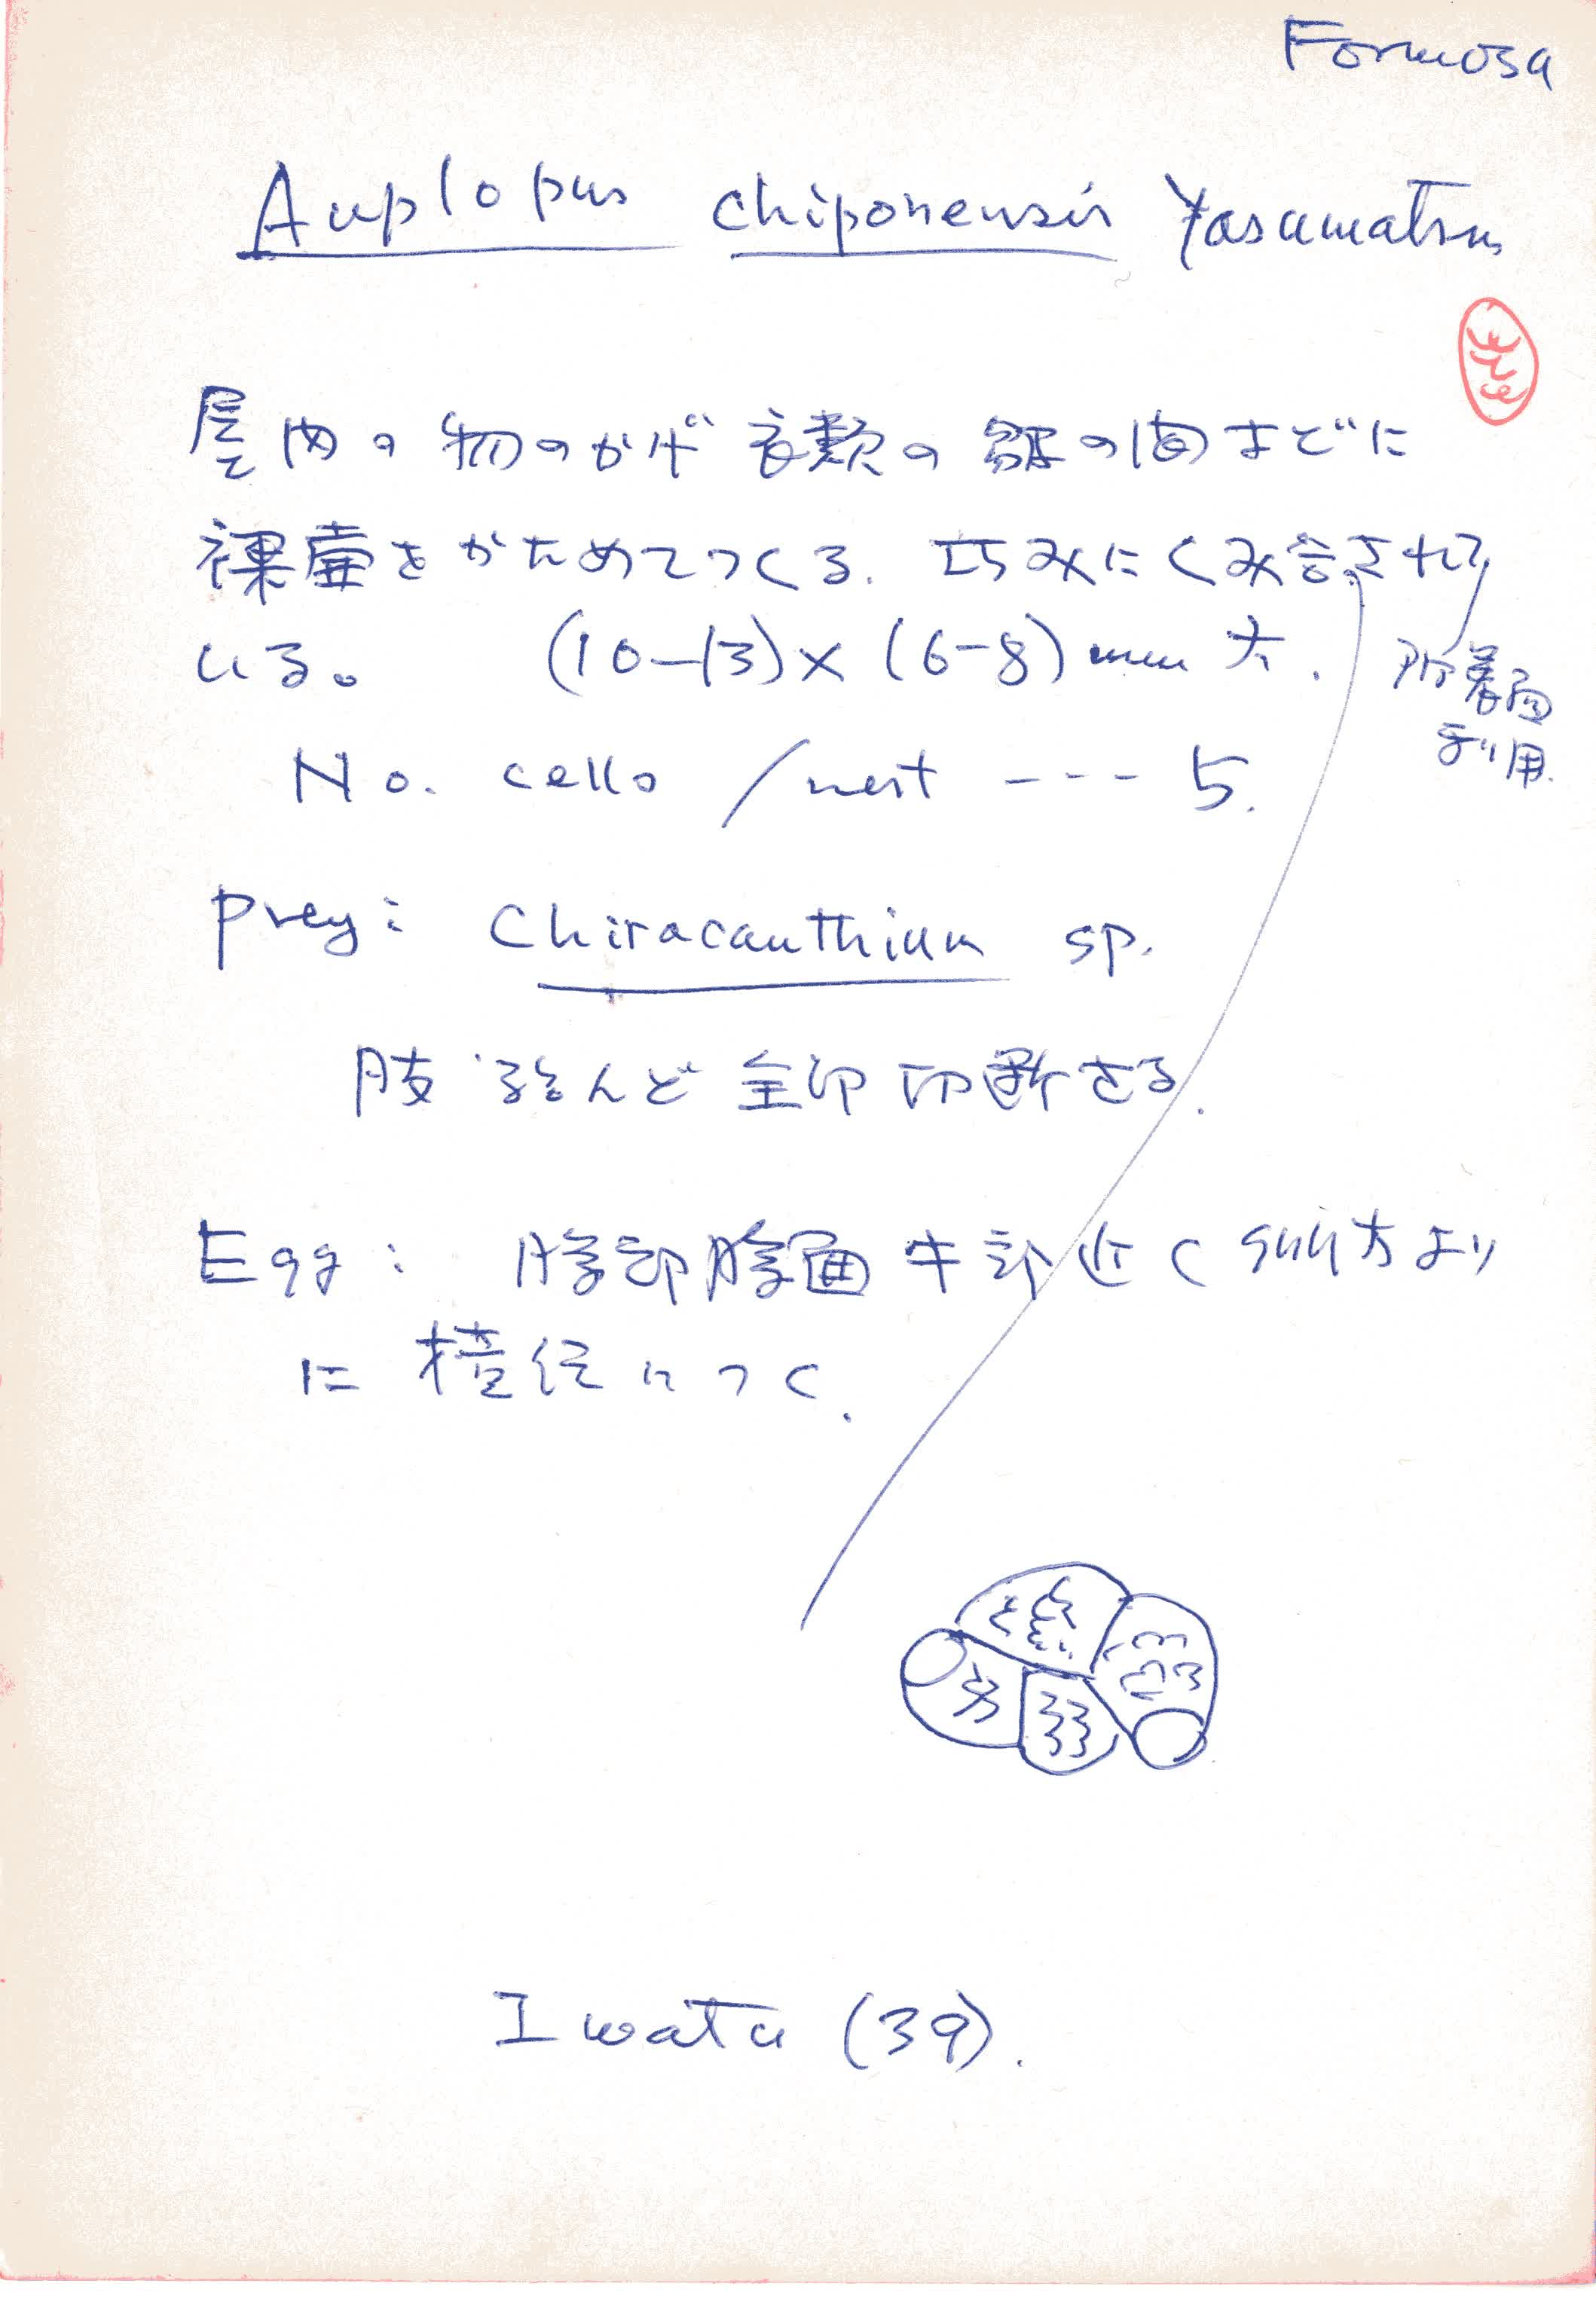 Formosa
Auplopus chiponensis Yasumatsu
屋内の物のかげ 衣類の皺の間などに
裸室をかためてつくる. 巧みにくみ合されて
いる。 (10–13) × (6–8) mm 大.
附着面
利用.
No. cells / nest --- 5.
Prey: Chiracanthium sp.
肢 殆んど 全部 切断さる.
Egg: 腹部腹面 半部近く 方より
に 横径につく.
Iwata (39).